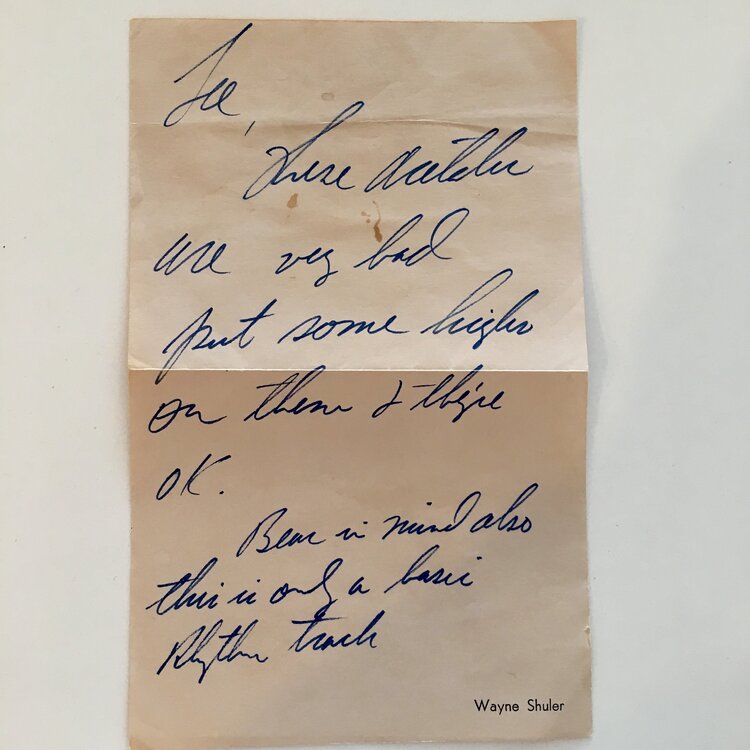 Lee,
These
are very bad
put some highs
on them & they're
OK.
Bear in mind also
this is only a basic
Rhythm track
Wayne Shuler